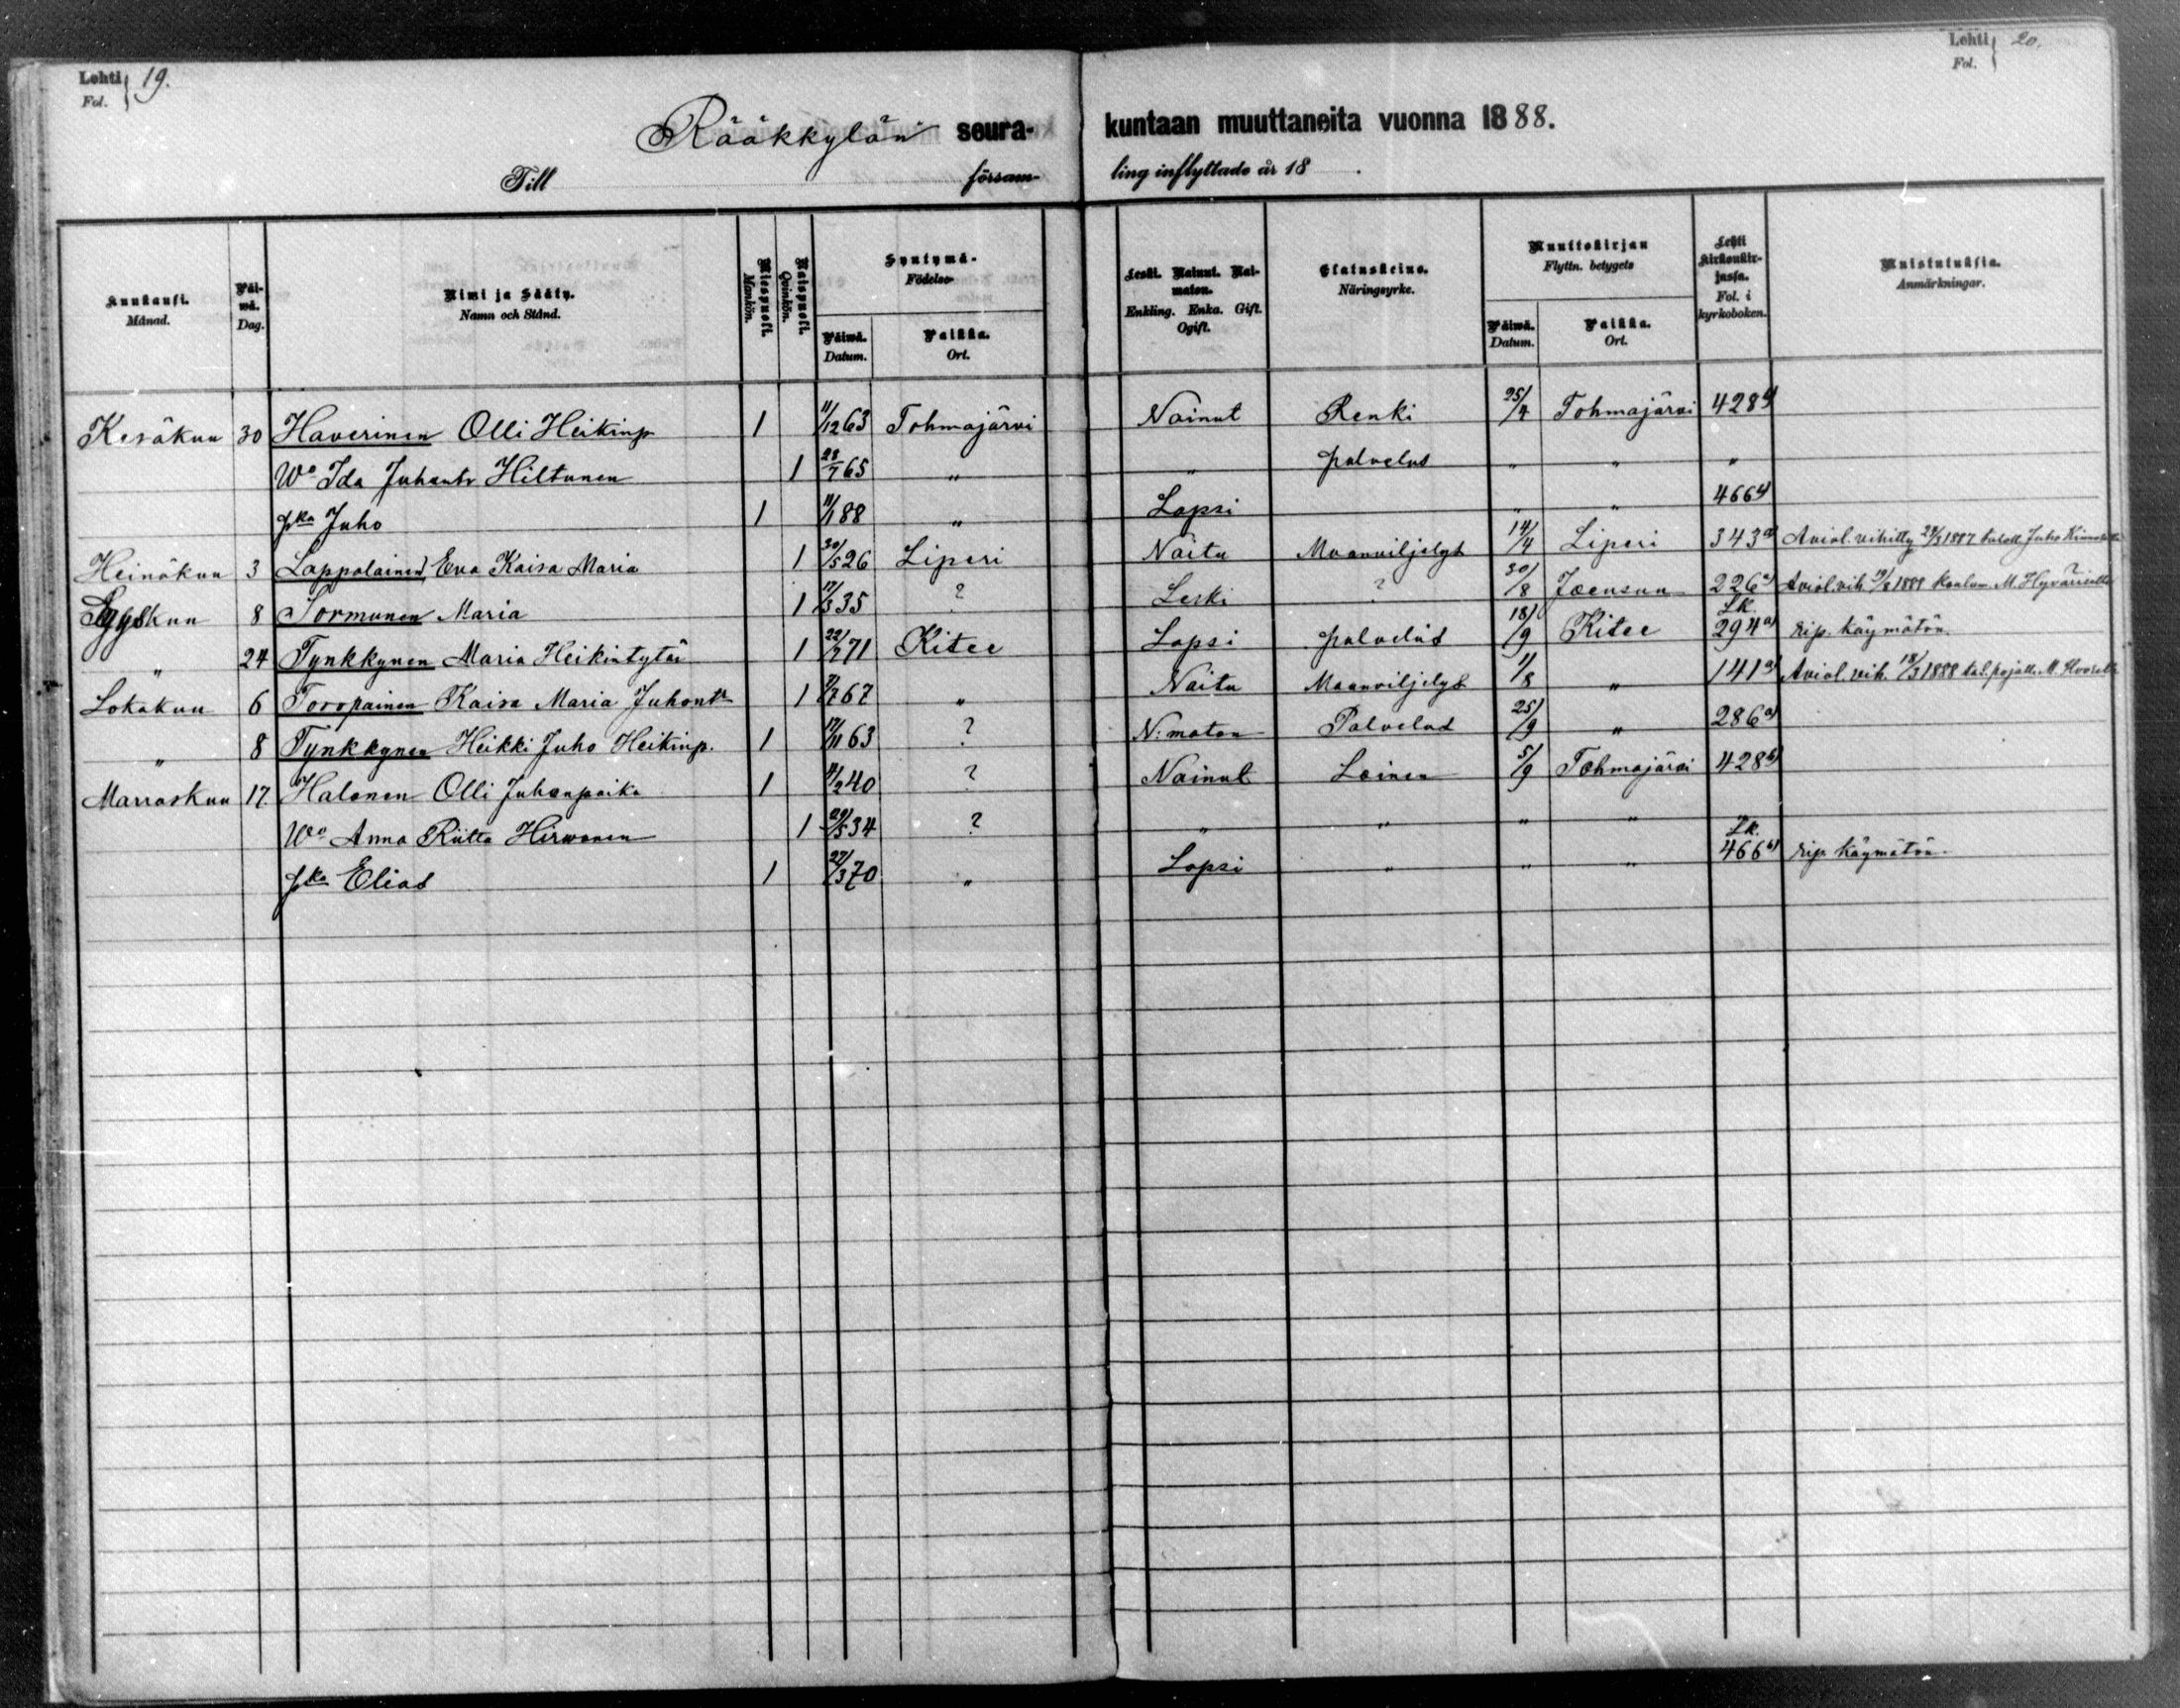 Lehti 19.
Fol.
Lehti 20.
Fol.
Rääkkylän seura- kuntaan muuttaneita vuonna 1888.
Till församling inflyttade år 18 .
Kuukausi. Månad.
Päiwä. Dag.
Nimi ja Sääty. Namn och Stånd.
Miespuoli. Mankön.
Naispuoli. Qvinkön.
Syntymä- Födelse-
Päiwä. Datum.
Paikka. Ort.
Leski. Nainut. Naimaton. Enkling. Enka. Gift. Ogift.
Elatuskeino. Näringsyrke.
Muuttokirjan Flyttn. betygets
Päiwä. Datum.
Paikka. Ort.
Lehti kirkonkirjassa. Fol. i kyrkoboken.
Muistutuksia. Anmärkningar.
Kesäkuu 30 Haverinen Olli Heikinp 1 11/12 63 Tohmajärvi Nainut Renki 25/4 Tohmajärvi 428
Wo Ida Juhontr Hiltunen 1 28/7 65 " " palvelus " " "
pka Juho 1 11/1 88 " Lapsi " " 466
Heinäkuu 3 Lappalainen Eva Kaisa Maria 1 30/5 26 Liperi Naitu Maanviljelys 14/4 Liperi 343a) Aviol. vihitty 1887 Juho
Syyskuu 8 Tormunen Maria 1 17/3 35 ? Leski ? 30/8 Joensuu 226a) Aviol. vih. M. Hyväriselle
" 24 Tynkkynen Maria Heikintytär 1 22/7 71 Kitee Lapsi palvelus 18/9 Kitee Lk. 294a) rip. käymätön.
Lokakuu 6 Toropainen Kaisa Maria Juhontr 1 67 " Naitu Maanviljelys 1/8 " 141a) Aviol. vih. 18/3 1888 tal. pojalle M.
" 8 Tynkkynen Heikki Juho Heikinp. 1 17/11 63 ? N:maton Palvelus 25/9 " 286a)
Marraskuu 17. Halonen Olli Juhonpoika 1 /2 40 ? Nainut Loinen 5/9 Tohmajärvi 428b)
Wo Anna Riitta Hirwonen 1 /5 34 ? " " " "
pka Elias 1 27/3 70 " Lapsi " " " Lk. 466b) rip. käymätön.